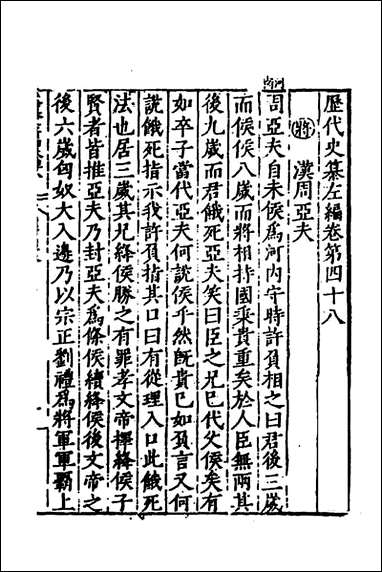 歷代史纂左編卷第四十八
將 漢周亞夫
周亞夫自未侯為河內守時許負相之曰君後三歲
而侯侯八歲而將相持國秉貴重矣於人臣無兩其
後九歲而君餓死亞夫笑曰臣之兄已代父侯矣有
如卒子當代亞夫何說侯乎然既貴已如負言又何
說餓死指示我許負指其口曰有從理入口此餓死
法也居三歲其兄絳侯勝之有罪孝文帝擇絳侯子
賢者皆推亞夫乃封亞夫為條侯續絳侯後文帝之
後六歲匈奴大入邊乃以宗正劉禮為將軍軍霸上